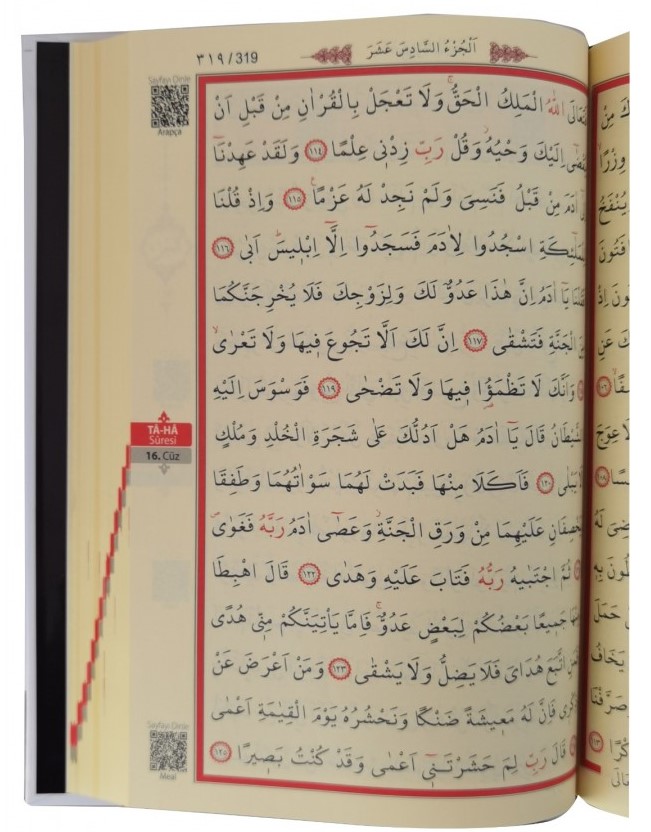 ٣١٩ / 319
اَلْجُزْءُ السَّادِسَ عَشَرَ
Sayfayı Dinle
Arapça
اللّٰهُ الْمَلِكُ الْحَقُّۚ وَلَا تَعْجَلْ بِالْقُرْاٰنِ مِنْ قَبْلِ اَنْ
اِلَيْكَ وَحْيُهُۘ وَقُلْ رَبِّ زِدْنٖى عِلْمًا ﴿١١٤﴾ وَلَقَدْ عَهِدْنَٓا
اٰدَمَ مِنْ قَبْلُ فَنَسِىَ وَلَمْ نَجِدْ لَهُ عَزْمًاۚ ﴿١١٥﴾ وَاِذْ قُلْنَا
اسْجُدُوا لِاٰدَمَ فَسَجَدُٓوا اِلَّٓا اِبْلٖيسَۜ اَبٰى ﴿١١٦﴾
يَٓا اٰدَمُ اِنَّ هٰذَا عَدُوٌّ لَكَ وَلِزَوْجِكَ فَلَا يُخْرِجَنَّكُمَا
الْجَنَّةِ فَتَشْقٰى ﴿١١٧﴾ اِنَّ لَكَ اَلَّا تَجُوعَ فٖيهَا وَلَا تَعْرٰىۙ
وَاَنَّكَ لَا تَظْمَؤُ۬ا فٖيهَا وَلَا تَضْحٰى ﴿١١٩﴾ فَوَسْوَسَ اِلَيْهِ
الشَّيْطَانُ قَالَ يَٓا اٰدَمُ هَلْ اَدُلُّكَ عَلٰى شَجَرَةِ الْخُلْدِ وَمُلْكٍ
يَبْلٰى ﴿١٢٠﴾ فَاَكَلَا مِنْهَا فَبَدَتْ لَهُمَا سَوْاٰتُهُمَا وَطَفِقَا
يَخْصِفَانِ عَلَيْهِمَا مِنْ وَرَقِ الْجَنَّةِۘ وَعَصٰٓى اٰدَمُ رَبَّهُ فَغَوٰىۖ
ثُمَّ اجْتَبٰيهُ رَبُّهُ فَتَابَ عَلَيْهِ وَهَدٰى ﴿١٢٢﴾ قَالَ اهْبِطَا
جَمٖيعًا بَعْضُكُمْ لِبَعْضٍ عَدُوٌّۚ فَاِمَّا يَاْتِيَنَّكُمْ مِنّٖى هُدًى
اتَّبَعَ هُدَاىَ فَلَا يَضِلُّ وَلَا يَشْقٰى ﴿١٢٣﴾ وَمَنْ اَعْرَضَ عَنْ
فَاِنَّ لَهُ مَعٖيشَةً ضَنْكًا وَنَحْشُرُهُ يَوْمَ الْقِيٰمَةِ اَعْمٰى
قَالَ رَبِّ لِمَ حَشَرْتَنٖٓى اَعْمٰى وَقَدْ كُنْتُ بَصٖيرًا ﴿١٢٥﴾
TÂ-HÂ
Sûresi
16. Cüz
Sayfayı Dinle
Meal